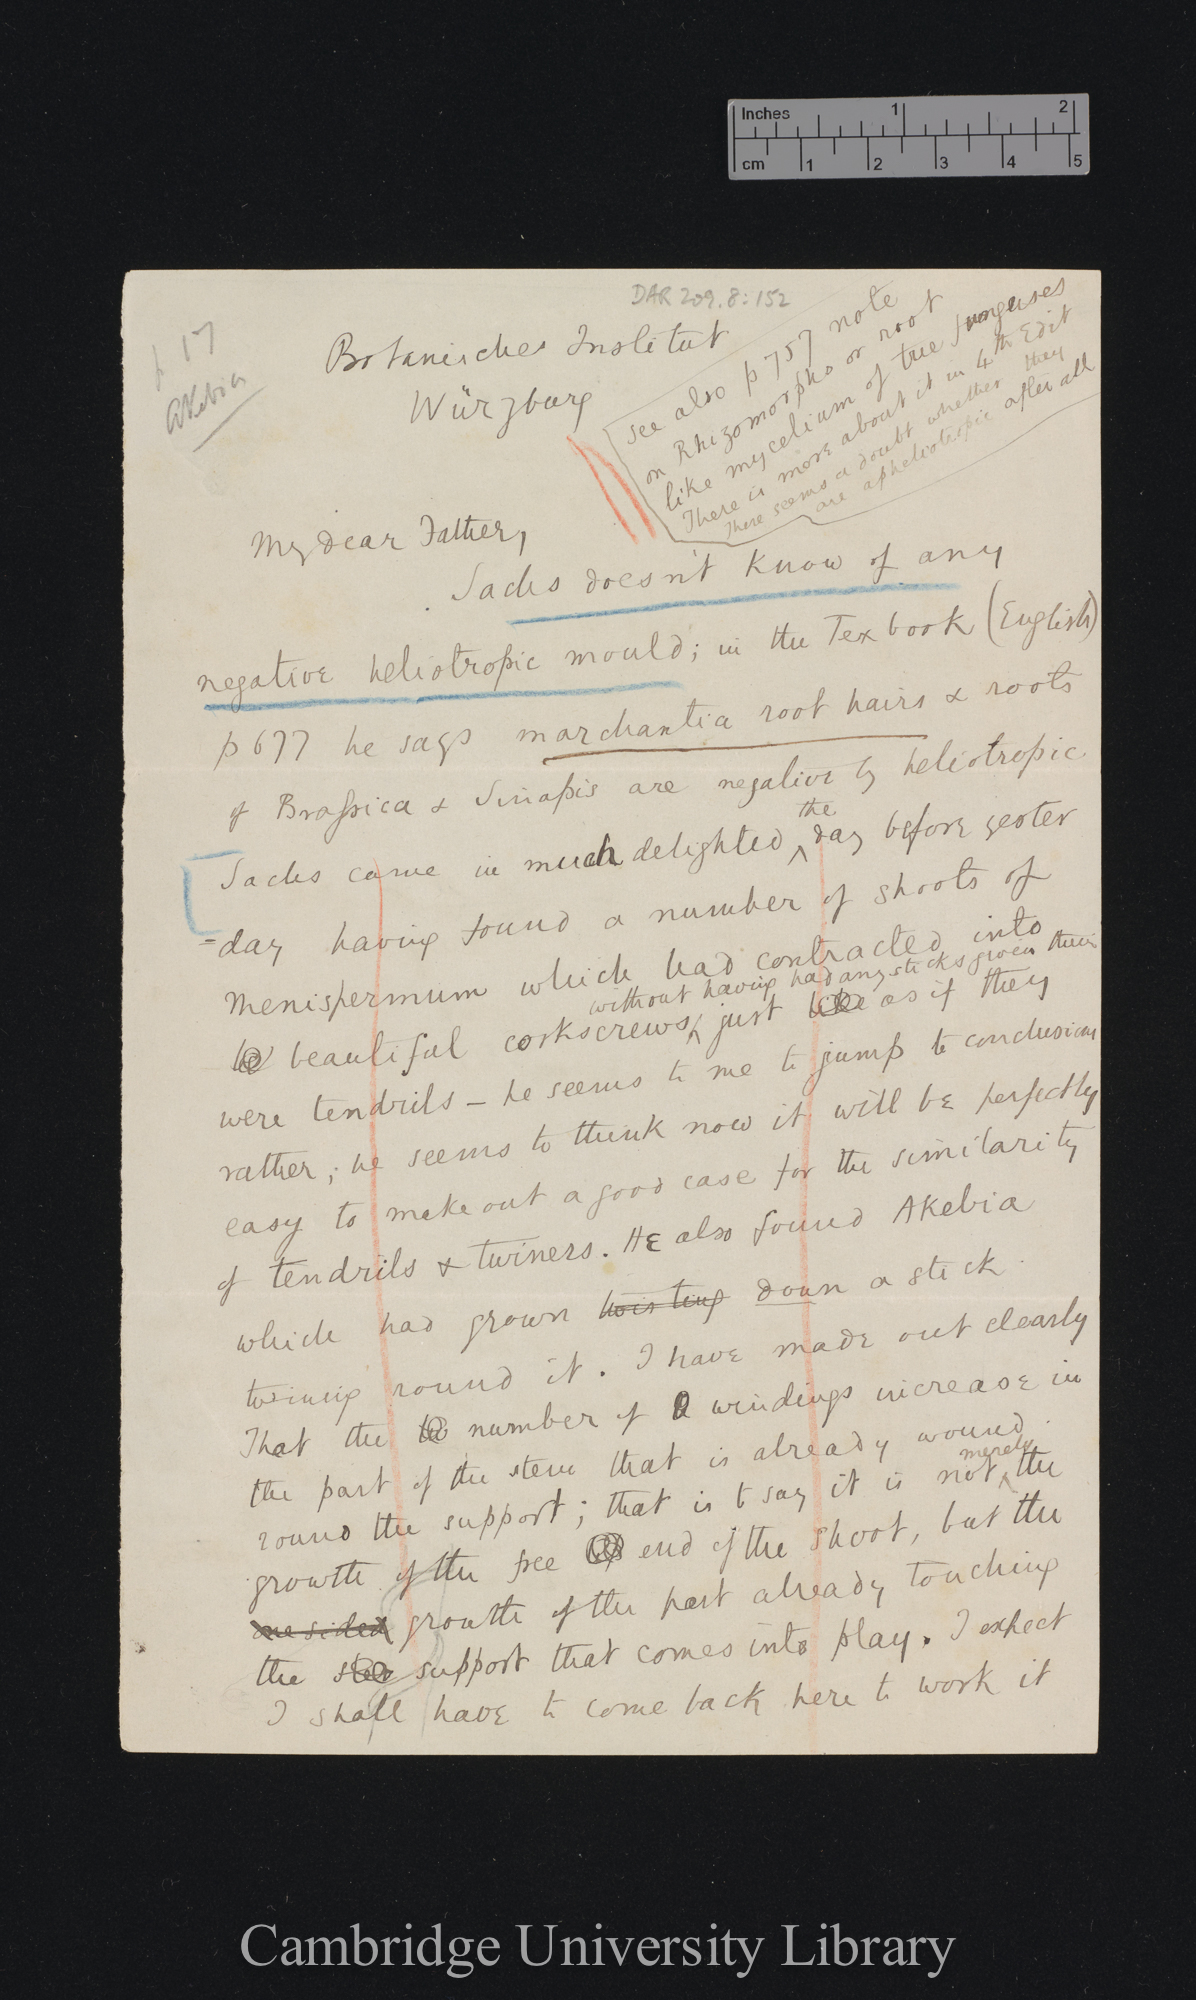 Inches 1 2
cm 1 2 3 4 5
DAR 209.8:152
17
Akebia
Botanisches Institut
Würzburg
see also p 757 note
on Rhizomorphs or root
like mycelium of true funguses
There is more about it in 4th Edit
There seems a doubt whether they
are apheliotropic after all
My dear Father,
Sachs doesn't know of any
negative heliotropic mould; in the Texbook (English)
p 677 he says marchantia root hairs & roots
of Brassica & Sinapis are negatively heliotropic
Sachs came in much delighted the day before yester
=day having found a number of shoots of
Menispermum which had contracted into
beautiful corkscrews without having had any sticks given them just like as if they
were tendrils – he seems to me to jump to conclusions
rather; he seems to think now it will be perfectly
easy to make out a good case for the similarity
of tendrils & twiners. He also found Akebia
which had grown twisting down a stick
twining round it. I have made out clearly
That the number of windings increase in
the part of the stem that is already wound
round the support; that is to say it is not merely the
growth of the free end of the shoot, but the
one sided growth of the part already touching
the support that comes into play. I expect
I shall have to come back here to work it
Cambridge University Library